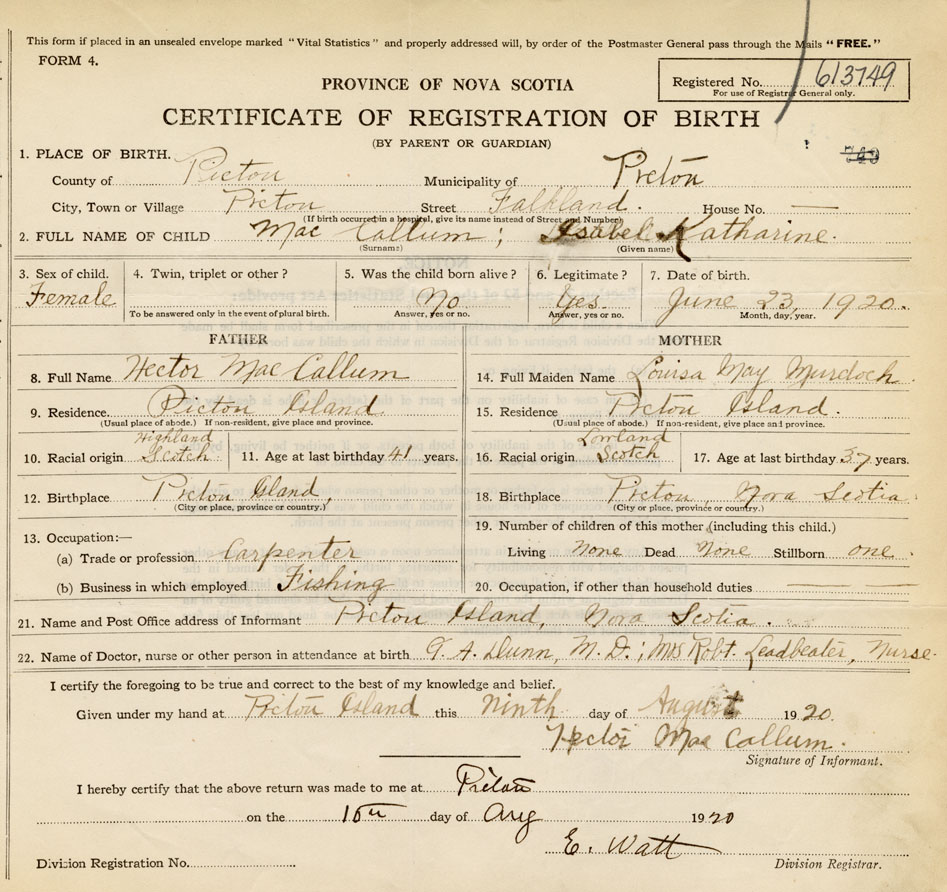 This form if placed in an unsealed envelope marked "Vital Statistics" and properly addressed will, by order of the Postmaster General pass through the Mails "FREE."
FORM 4.
Registered No. 613749
For use of Registrar General only.
PROVINCE OF NOVA SCOTIA
CERTIFICATE OF REGISTRATION OF BIRTH
(BY PARENT OR GUARDIAN)
749
1. PLACE OF BIRTH.
County of Pictou Municipality of Pictou
City, Town or Village Pictou Street Falkland. House No. —
(If birth occurred in a hospital, give its name instead of Street and Number)
2. FULL NAME OF CHILD Mac Callum; Isabel Katharine.
(Surname) (Given name)
3. Sex of child. 4. Twin, triplet or other? 5. Was the child born alive? 6. Legitimate? 7. Date of birth.
Female No. Yes. June 23, 1920.
To be answered only in the event of plural birth. Answer, yes or no. Answer, yes or no. Month, day, year.
FATHER MOTHER
8. Full Name Hector MacCallum 14. Full Maiden Name Louisa May Murdoch.
9. Residence. Pictou Island 15. Residence Pictou Island.
(Usual place of abode.) If non-resident, give place and province. (Usual place of abode.) If non-resident, give place and province.
Highland Lowland
10. Racial origin Scotch. 11. Age at last birthday 41 years. 16. Racial origin Scotch 17. Age at last birthday 37 years.
12. Birthplace Pictou Island, 18. Birthplace Pictou, Nova Scotia.
(City or place, province or country.) (City or place, province or country.)
13. Occupation:— 19. Number of children of this mother (including this child.)
(a) Trade or profession Carpenter Living None Dead None Stillborn one.
(b) Business in which employed Fishing 20. Occupation, if other than household duties ——
21. Name and Post Office address of Informant Pictou Island, Nova Scotia.
22. Name of Doctor, nurse or other person in attendance at birth G. A. Dunn, M.D.; Mrs Robt. Leadbeater, Nurse.
I certify the foregoing to be true and correct to the best of my knowledge and belief.
Given under my hand at Pictou Island this Ninth day of August 1920.
Hector MacCallum.
Signature of Informant.
I hereby certify that the above return was made to me at Pictou
on the day of Aug 1920
E. Watt
Division Registration No. Division Registrar.